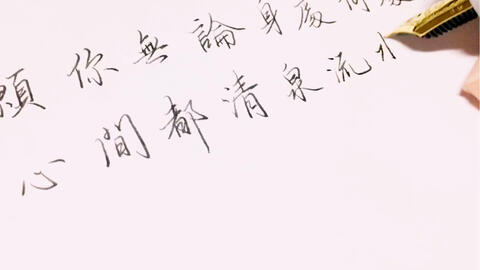 願你無論身處何處
心間都清泉流